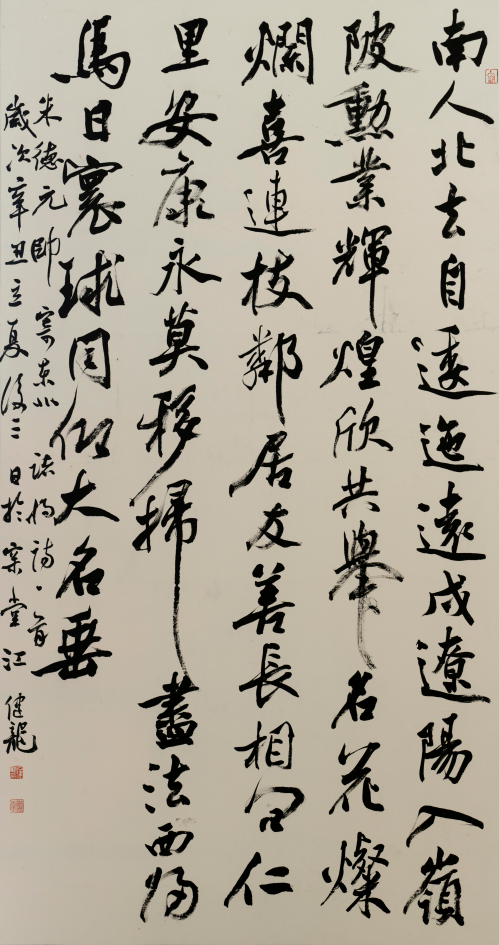 南人北去自逶迤遠戍遼陽入嶺
陂勳業輝煌欣共舉名花燦
爛喜連枝鄰居友善長相仁
里安康永莫移掃盡法西歸
馬日寰球同仰大名垂
朱德元帥寄東北諸將詩一首
歲次辛丑立夏後三日於堂江健龍